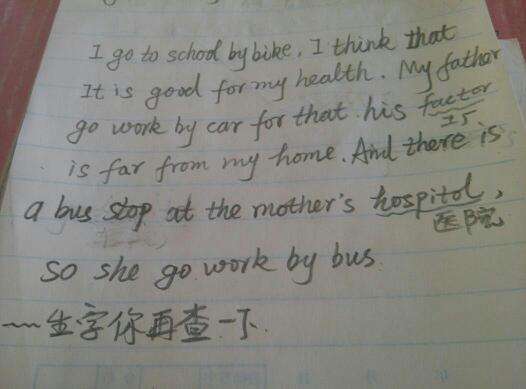 I go to school by bike. I think that
It is good for my health. My father
go work by car for that his factor
工厂
is far from my home. And there is
a bus stop at the mother's hospitol,
医院
so she go work by bus.
~~生字你再查一下.